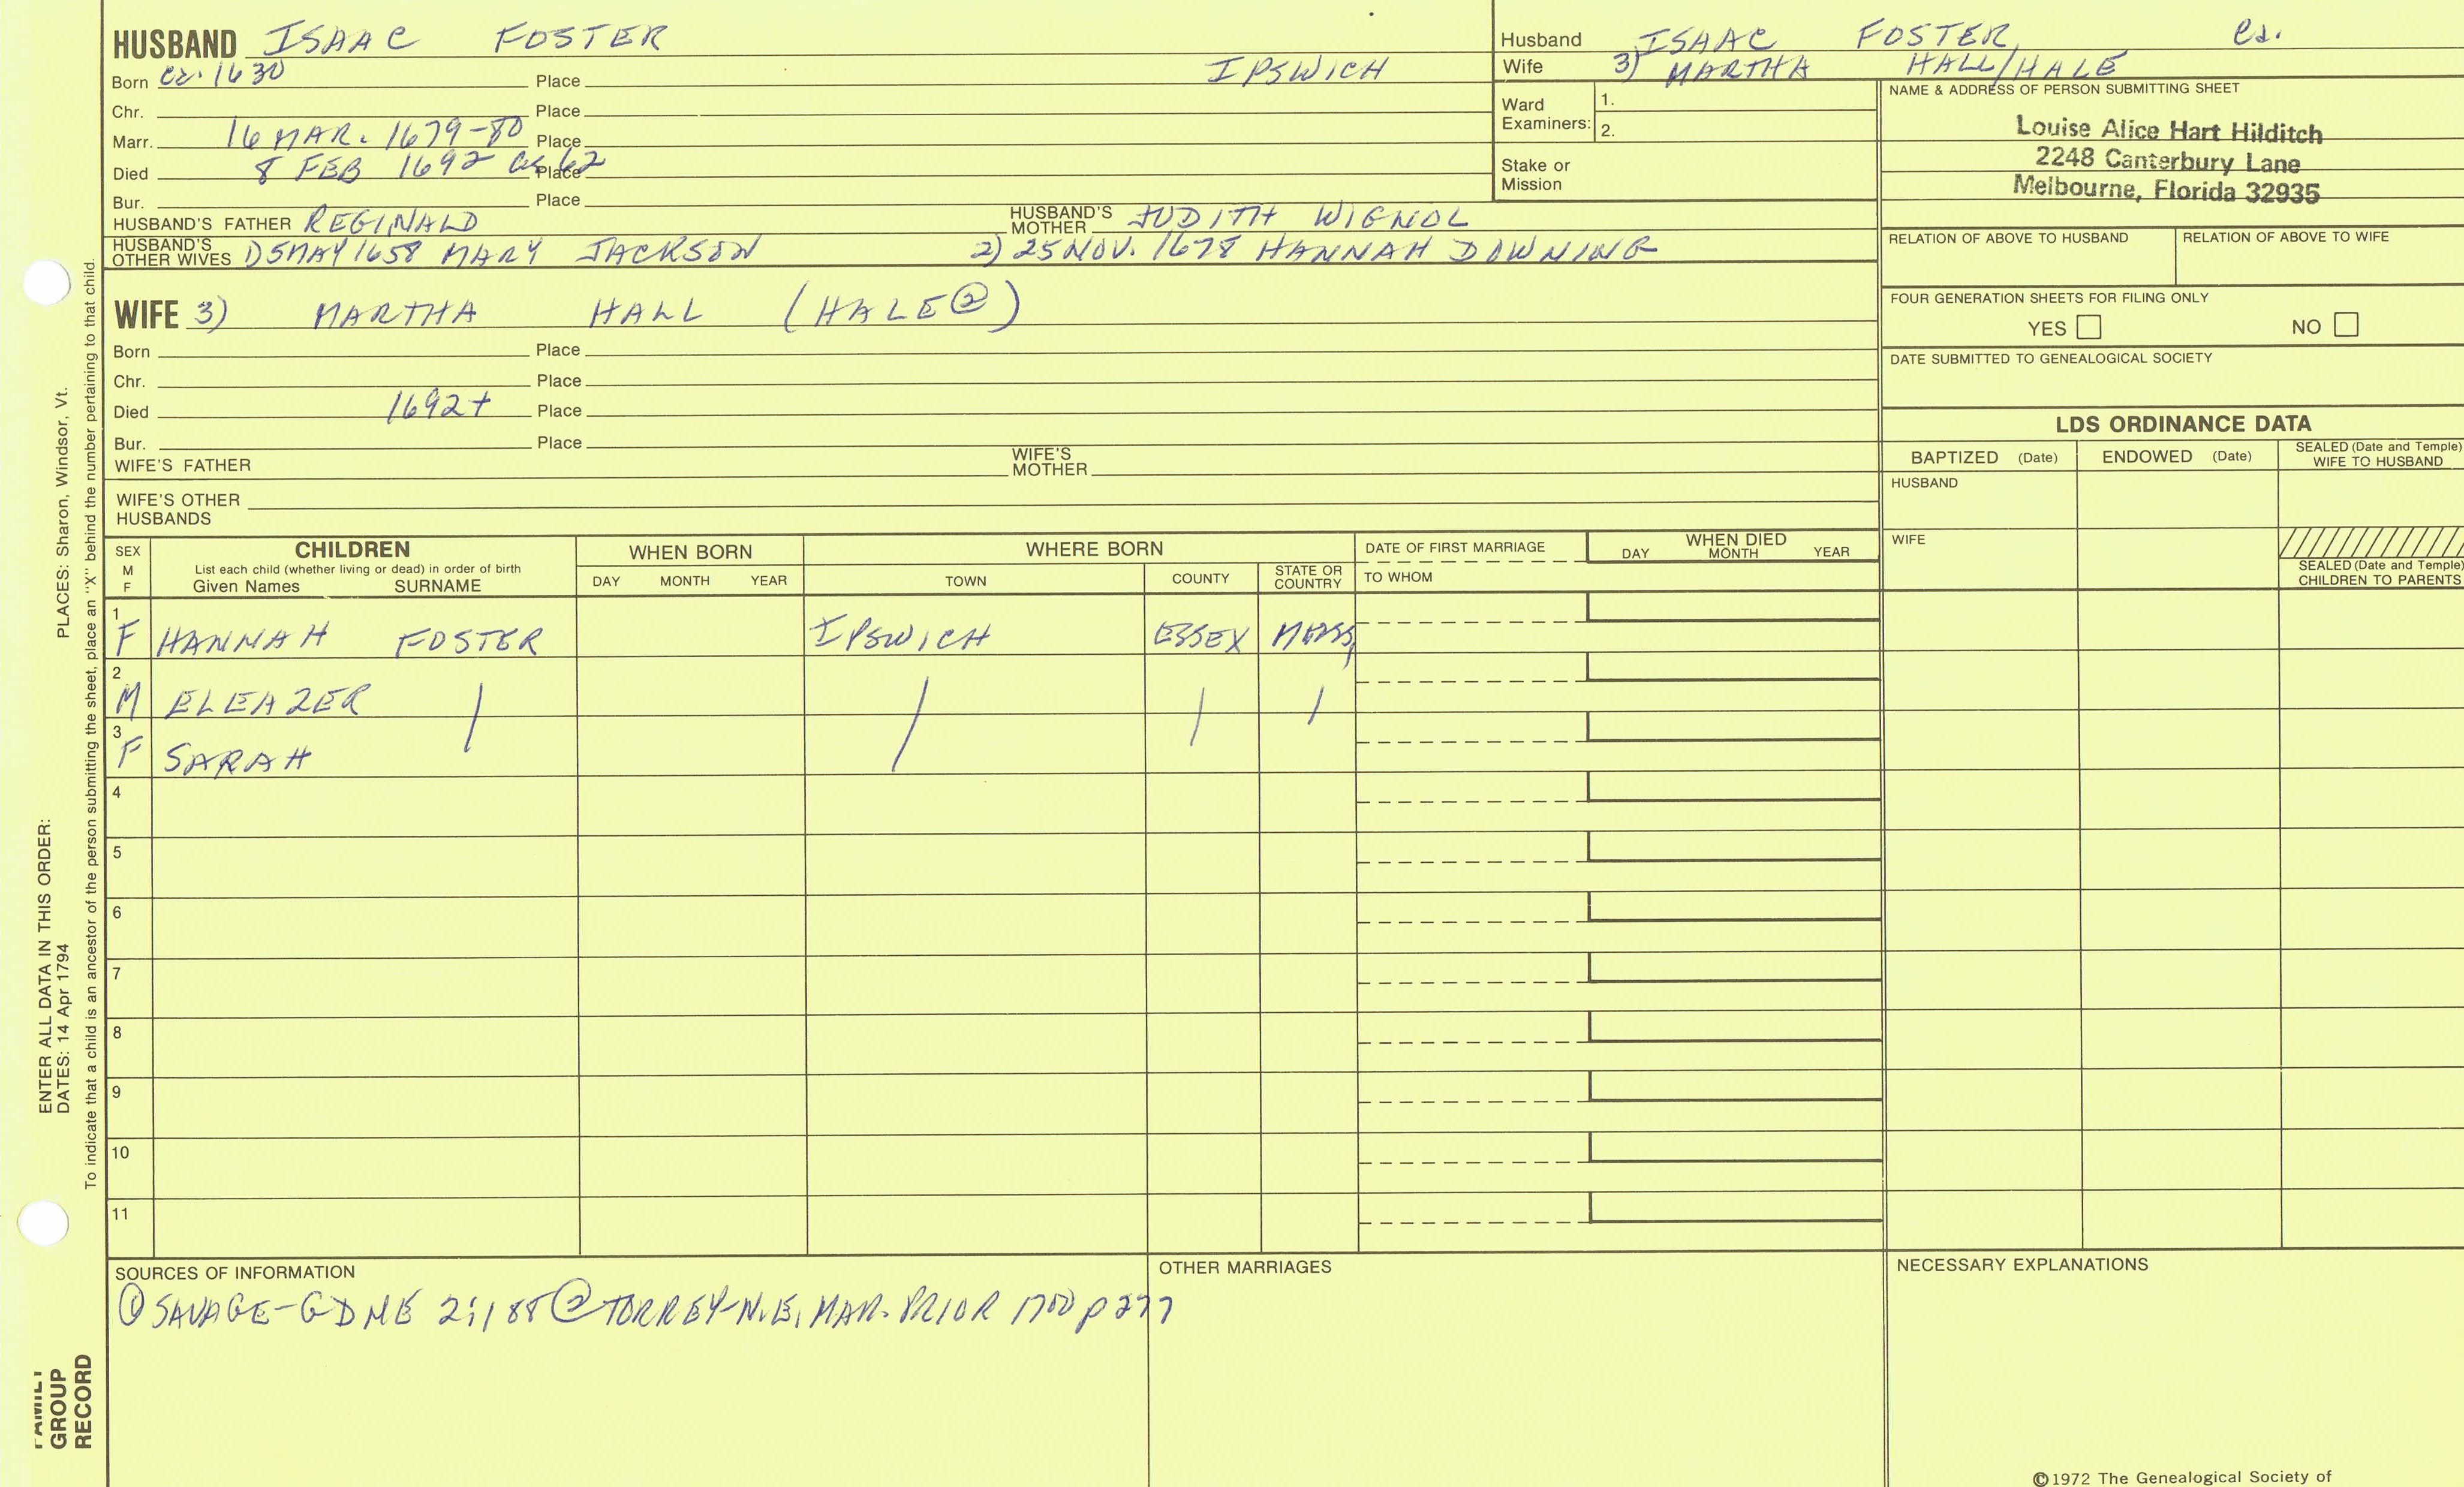 HUSBAND ISAAC FOSTER
Born ca. 1630 Place IPSWICH
Chr. Place
Marr. 16 MAR. 1679-80 Place
Died 8 FEB 1692 as 62 Place
Bur. Place
HUSBAND'S FATHER REGINALD HUSBAND'S MOTHER JUDITH WIGNOL
HUSBAND'S OTHER WIVES 1) 5 MAY 1658 MARY JACKSON 2) 25 NOV. 1678 HANNAH DOWNING
WIFE 3) MARTHA HALL (HALE②)
Born Place
Chr. Place
Died 1692+ Place
Bur. Place
WIFE'S FATHER WIFE'S MOTHER
WIFE'S OTHER HUSBANDS
Husband ISAAC FOSTER
Wife 3) MARTHA HALL/HALE
Ward Examiners: 1.
2.
Stake or Mission
NAME & ADDRESS OF PERSON SUBMITTING SHEET
Louise Alice Hart Hilditch
2248 Canterbury Lane
Melbourne, Florida 32935
RELATION OF ABOVE TO HUSBAND RELATION OF ABOVE TO WIFE
FOUR GENERATION SHEETS FOR FILING ONLY
YES NO
DATE SUBMITTED TO GENEALOGICAL SOCIETY
LDS ORDINANCE DATA
BAPTIZED (Date) ENDOWED (Date) SEALED (Date and Temple) WIFE TO HUSBAND
HUSBAND
WIFE
SEALED (Date and Temple) CHILDREN TO PARENTS
SEX M F CHILDREN WHEN BORN WHERE BORN DATE OF FIRST MARRIAGE WHEN DIED
List each child (whether living or dead) in order of birth
Given Names SURNAME DAY MONTH YEAR TOWN COUNTY STATE OR COUNTRY TO WHOM DAY MONTH YEAR
1 F HANNAH FOSTER IPSWICH ESSEX MASS,
2 M ELEAZER
3 F SARAH
4
5
6
7
8
9
10
11
SOURCES OF INFORMATION
① SAVAGE-GDNE 2:188 ② TORREY-N.E. MAR. PRIOR 1700 p 277
OTHER MARRIAGES
NECESSARY EXPLANATIONS
©1972 The Genealogical Society of
PLACES: Sharon, Windsor, Vt.
To indicate that a child is an ancestor of the person submitting the sheet, place an "X" behind the number pertaining to that child.
ENTER ALL DATA IN THIS ORDER:
DATES: 14 Apr 1794
FAMILY
GROUP
RECORD